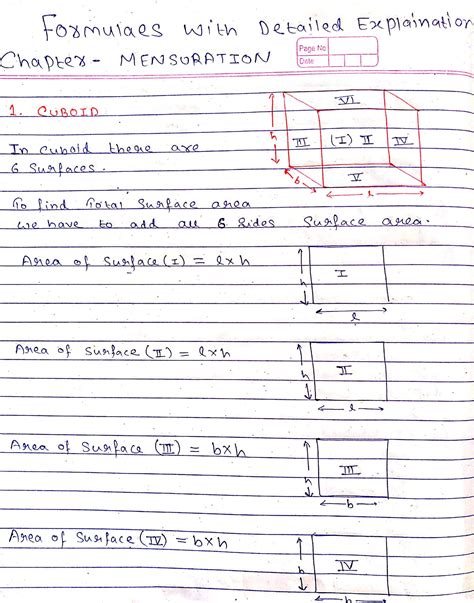 Formulaes with Detailed Explaination
Chapter - MENSURATION
Page No
Date
1. CUBOID
VI
h III (I) II IV
In cuboid there are
6 Surfaces.
b V
l
To find Total Surface area
we have to add all 6 Sides Surface area.
Area of Surface (I) = l×h
h I
l
Area of Surface (II) = l×h
h II
l
Area of Surface (III) = b×h
h III
b
Area of Surface (IV) = b×h
h IV